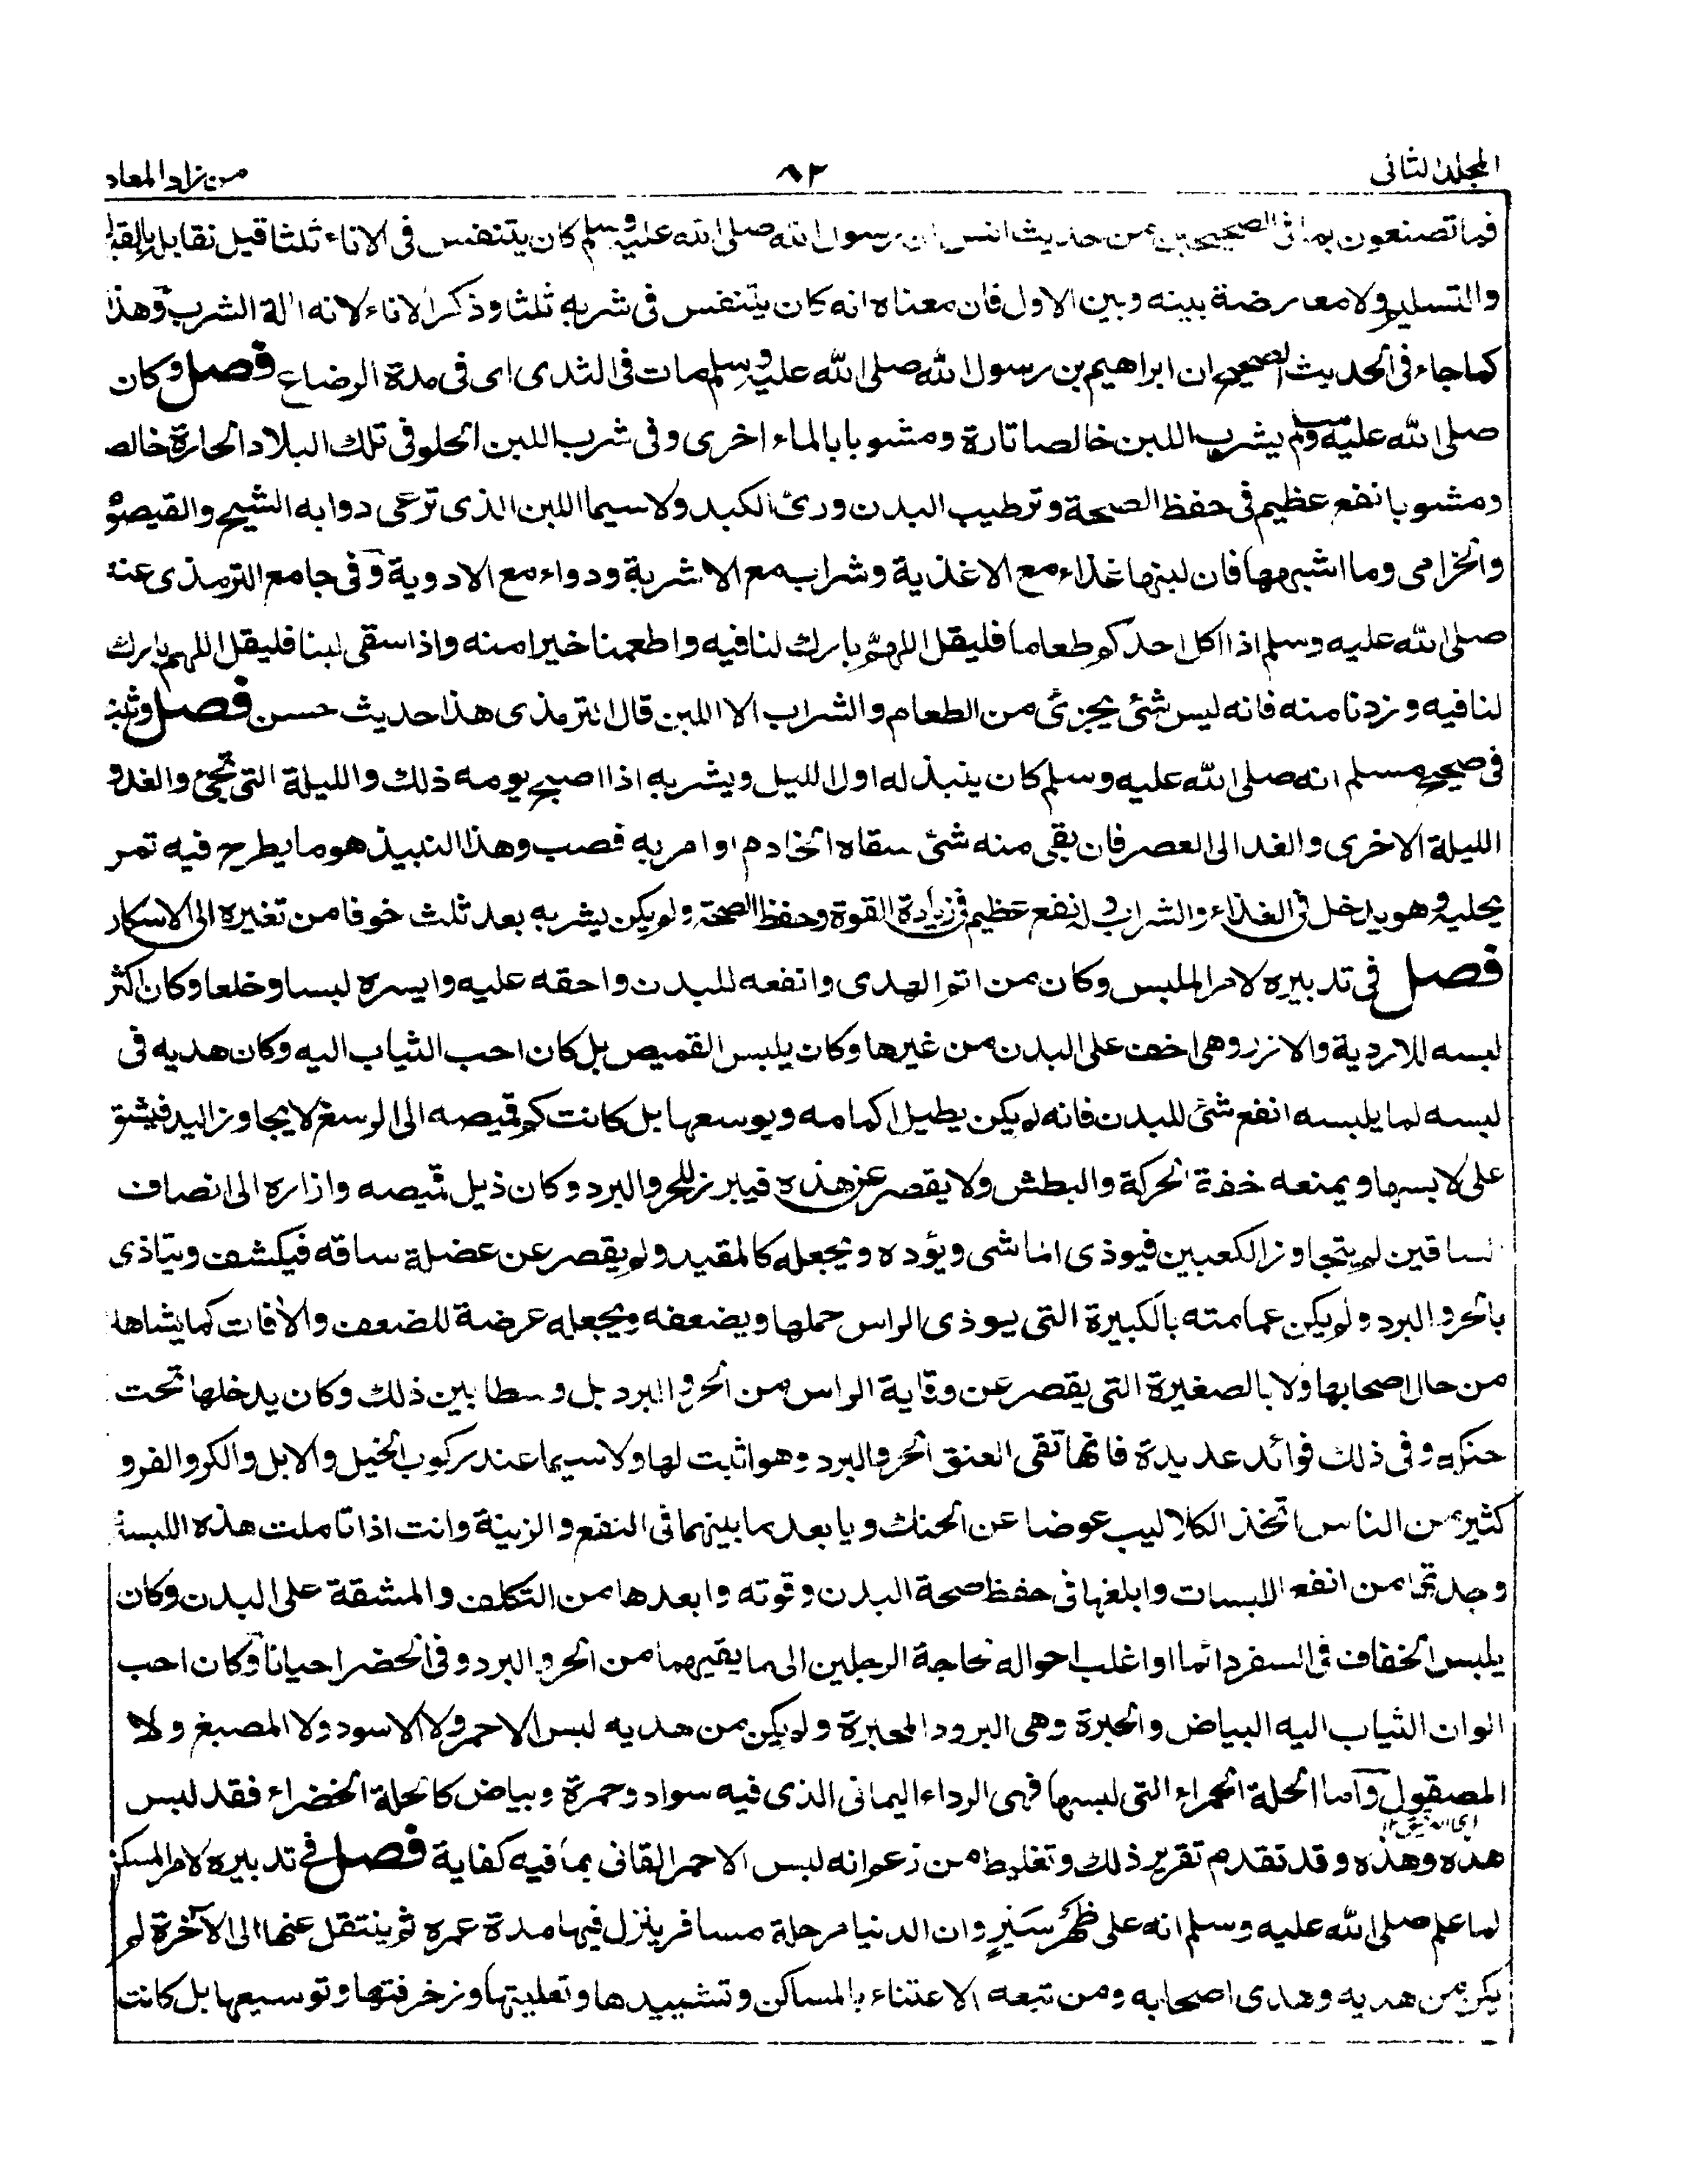 المجلد الثانى
٨٢
من زاد المعاد
فما تصنعون بما فى الصحيحين من حديث انس ان رسول الله صلى الله عليه وسلم كان يتنفس فى الاناء ثلثا قيل نقابله بالقبول
والتسليم ولا معارضة بينه وبين الاول فان معناه انه كان يتنفس فى شربه ثلثا وذكر الاناء لانه الة الشرب وهذا
كما جاء فى الحديث الصحيح ان ابراهيم بن رسول الله صلى الله عليه وسلم مات فى الثدى اى فى مدة الرضاع فصل وكان
صلى الله عليه وسلم يشرب اللبن خالصا تارة ومشوبا بالماء اخرى وفى شرب اللبن الحلو فى تلك البلاد الحارة خالصا
ومشوبا نفع عظيم فى حفظ الصحة وترطيب البدن ورئ الكبد ولا سيما اللبن الذى ترعى دوابه الشيح والقيصوم
والخزامى وما اشبهها فان لبنها غذاء مع الاغذية وشراب مع الاشربة ودواء مع الادوية وفى جامع الترمذى عنه
صلى الله عليه وسلم اذا اكل احدكم طعاما فليقل اللهم بارك لنا فيه واطعمنا خيرا منه واذا سقى لبنا فليقل اللهم بارك
لنا فيه وزدنا منه فانه ليس شئ يجزئ من الطعام والشراب الا اللبن قال الترمذى هذا حديث حسن فصل وثبت
فى صحيح مسلم انه صلى الله عليه وسلم كان ينبذ له اول الليل ويشربه اذا اصبح يومه ذلك والليلة التى تجئ والغد و
الليلة الاخرى والغد الى العصر فان بقى منه شئ سقاه الخادم او امر به فصب وهذا النبيذ هو ما يطرح فيه تمر
يحليه وهو يدخل فى الغذاء والشراب وله نفع عظيم فى زيادة القوة وحفظ الصحة ولم يكن يشربه بعد ثلث خوفا من تغيره الى الاسكار
فصل فى تدبيره لامر الملبس وكان من اتم الهدى وانفعه للبدن واحقه عليه وايسره لبسا وخلعا وكان اكثر
لبسه للاردية والازر وهى اخف على البدن من غيرها وكان يلبس القميص بل كان احب الثياب اليه وكان هديه فى
لبسه لما يلبسه انفع شئ للبدن فانه لم يكن يطيل اكمامه ويوسعها بل كانت كم قميصه الى الرسغ لا يجاوز اليد فيشق
على لابسها ويمنعه خفة الحركة والبطش ولا يقصر عن هذه فيبرز للحر والبرد وكان ذيل قميصه وازاره الى انصاف
الساقين لم يتجاوز الكعبين فيوذى الماشى ويؤده ويجعله كالمقيد ولم يقصر عن عضلة ساقه فيكشف ويتاذى
بالحر والبرد ولم يكن عمامته بالكبيرة التى يوذى الراس حملها ويضعفه ويجعله عرضة للضعف والافات كما يشاهد
من حال اصحابها ولا بالصغيرة التى يقصر عن وقاية الراس من الحر والبرد بل وسطا بين ذلك وكان يدخلها تحت
حنكه وفى ذلك فوائد عديدة فانها تقى العنق الحر والبرد وهو اثبت لها ولا سيما عند ركوب الخيل والابل والكر والفر و
كثير من الناس اتخذ الكلاليب عوضا عن الحنك ويا بعد ما بينهما فى النفع والزينة وانت اذا تاملت هذه اللبسة
وجدتها من انفع اللبسات وابلغها فى حفظ صحة البدن وقوته وابعدها من التكلف والمشقة على البدن وكان
يلبس الخفاف فى السفر دائما او اغلب احواله لحاجة الرجلين الى ما يقيهما من الحر والبرد وفى الحضر احيانا وكان احب
الوان الثياب اليه البياض والحبرة وهى البرود المحبرة ولم يكن من هديه لبس الاحمر ولا الاسود ولا المصبغ ولا
المصقول واما الحلة الحمراء التى لبسها فهى الرداء اليمانى الذى فيه سواد وحمرة وبياض كالحلة الخضراء فقد لبس
هذه وهذه وقد تقدم تقرير ذلك وتغليط من زعم انه لبس الاحمر القانى بما فيه كفاية فصل فى تدبيره لامر المسكن
لما علم صلى الله عليه وسلم انه على ظَهْرِ سَيْرٍ وان الدنيا مرحلة مسافر ينزل فيها مدة عمره ثم ينتقل عنها الى الآخرة لم
يكن من هديه وهدى اصحابه ومن تبعه الاعتناء بالمساكن وتشييدها وتعليتها وزخرفتها وتوسيعها بل كانت